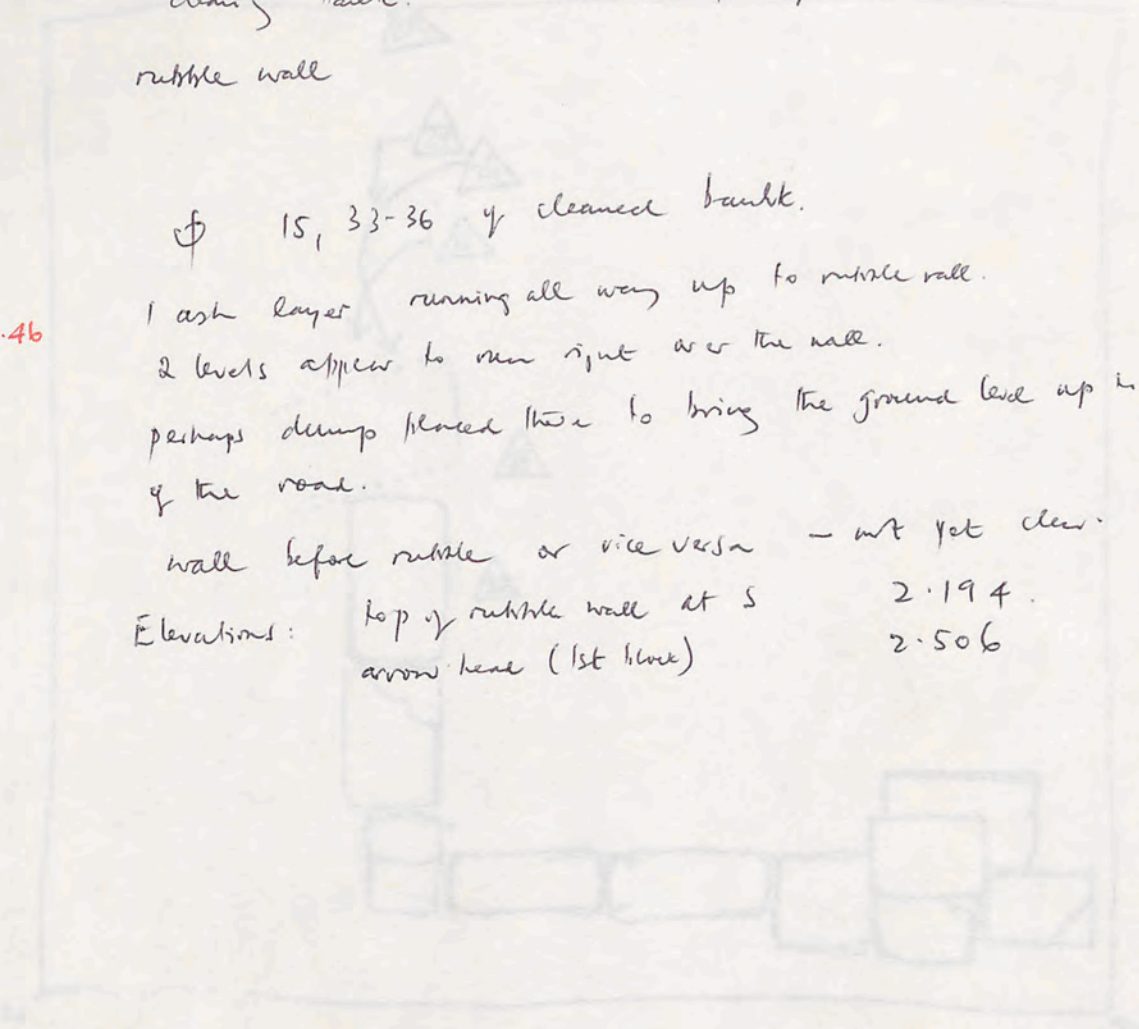 rubble wall
15, 33-36 of cleaned baulk.
1 ash layer running all way up to rubble wall.
.46
2 levels appear to run right over the wall.
perhaps dump placed there to bring the ground level up
of the road.
wall before rubble or vice versa – not yet clear.
Elevations: top of rubble wall at S 2.194.
arrow head (1st block) 2.506